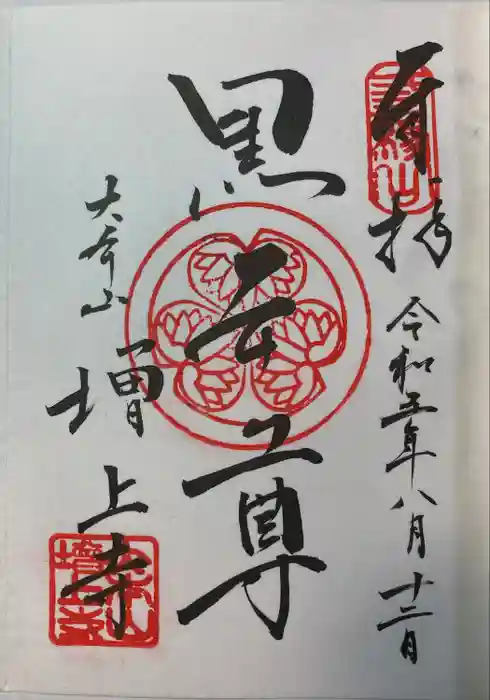 奉拝
三縁山
令和五年八月
黒本尊
大本山
増上寺